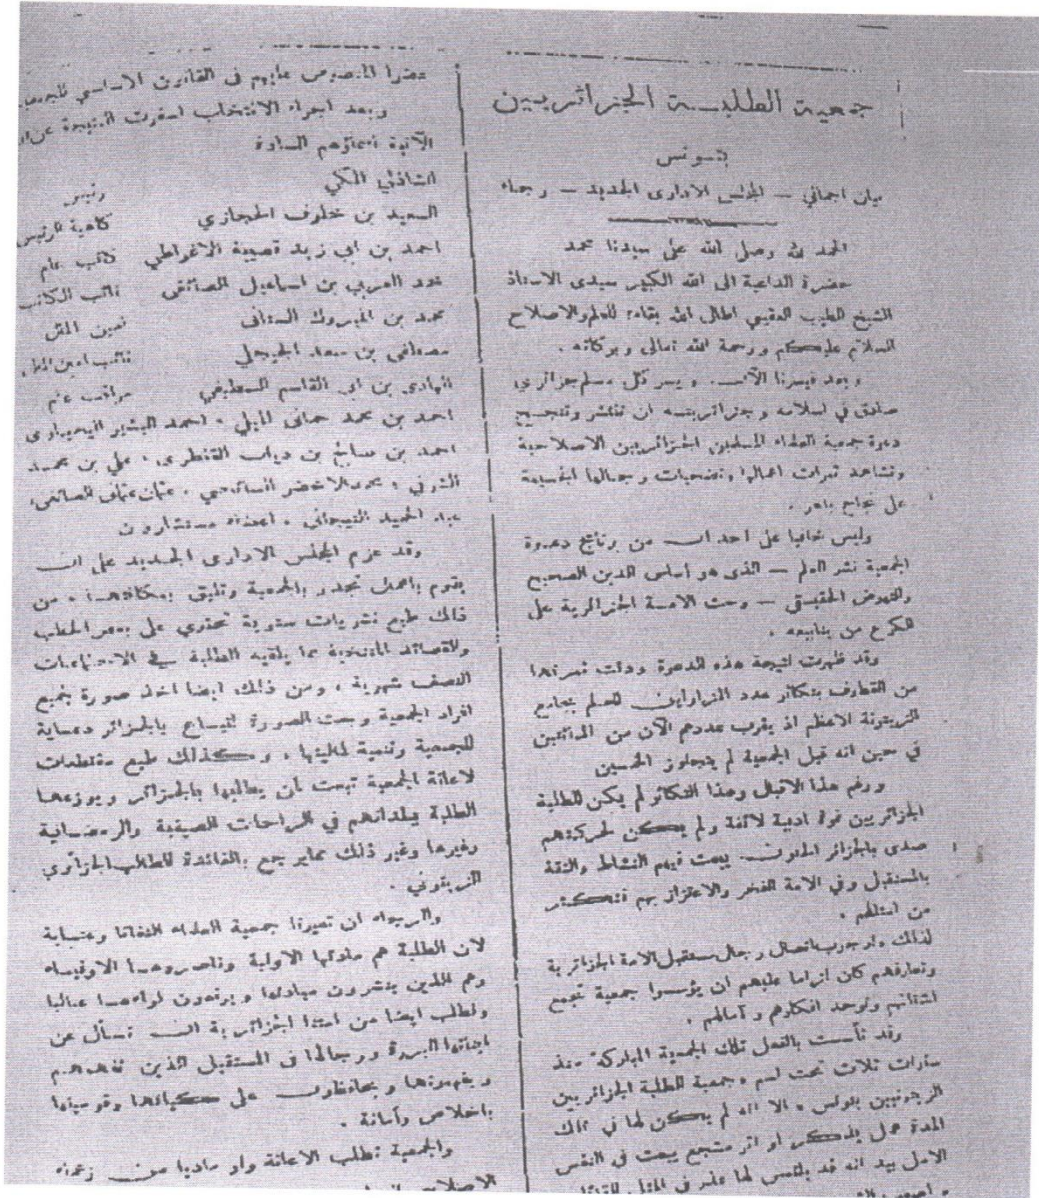 جمعية الطلبة الجزائريين
بتونس
بيان اجمالي — المجلس الاداري الجديد — رجاء
الحمد لله وصلى الله على سيدنا محمد
حضرة الداعية الى الله الكبير سيدى الاستاذ
الشيخ الطيب العقبي اطال الله بقاءه للعلم والاصلاح
السلام عليكم ورحمة الله تعالى وبركاته .
و بعد فيسرنا الآن . ويسر كل مسلم جزائري
صادق في اسلامه وجزائريته ان تنتشر وتنجح
دعوة جمعية العلماء المسلمين الجزائريين الاصلاحية
ونشاهد ثمرات اعمالها وتضحيات رجالها الجسيمة
على نجاح باهر .
وليس خافيا على احد ان من برنامج دعوة
الجمعية نشر العلم — الذى هو اساس الدين الصحيح
والنهوض الحقيقى — وحث الامة الجزائرية على
الكرع من ينابيعه .
وقد ظهرت نتيجة هذه الدعوة ودنت ثمرتها
من القطاف بتكاثر عدد المزاولين للعلم بجامع
الزيتونة الاعظم اذ يقرب عددهم الآن من المائتين
في حين انه قبل الجمعية لم يتجاوز الخمسين
و رغم هذا الاقبال وهذا التكاثر لم يكن للطلبة
الجزائريين قوة ادبية لائقة ولم يكن لحركتهم
صدى بالجزائر الحنون يبعث فيهم النشاط والثقة
بالمستقبل وفي الامة الفخر والاعتزاز بهم فتكثر
من امثالهم .
لذلك ولوجوب اتصال رجال مستقبل الامة الجزائرية
وتعارفهم كان لزاما عليهم ان يؤسسوا جمعية تجمع
اشتاتهم وتوحد افكارهم و آمالهم .
وقد تأسست بالفعل تلك الجمعية المباركة منذ
سنوات ثلاث تحت اسم « جمعية الطلبة الجزائريين
الزيتونيين بتونس » الا انه لم يكن لها في تلك
المدة عمل يذكر او اثر مشجع يبعث في النفس
الامل بيد انه قد يلتمس لها عذر في
عشرا المنصوص عليهم في القانون الاساسي للجمعية
وبعد اجراء الانتخاب اسفرت النتيجة عن
الآتية اسماؤهم السادة
الشاذلي المكي رئيس
السعيد بن خلوف الحجازي كاهية الرئيس
احمد بن ابي زيد قصيبة الاغواطي كاتب عام
محمد العربي بن اسماعيل الصائغى نائب الكاتب
محمد بن المبروك امين المال
مصطفى بن سعد الجيجلي نائب امين المال
الهادى بن ابي القاسم السطيفي مراقب عام
احمد بن محمد حماني الميلي ، احمد البشير اليعياوى
احمد بن سايح بن دياب القنطرى ، علي بن محمد
محمد الاخضر السائحي ،
عبد الحميد التيجاني ، اعضاء مستشارون
وقد عزم المجلس الادارى الجديد على ان
يقوم باعمال تجدر بالجمعية وتليق بمكانتها ، من
ذلك طبع نشريات سنوية تحتوي على بعض الخطب
والقصائد المنتخبة مما يلقيه الطلبة في الاجتماعات
النصف شهرية ، ومن ذلك ايضا اخذ صورة بجميع
افراد الجمعية وبعث الصورة لتباع بالجزائر دعاية
للجمعية وتنمية لماليتها . وكذلك طبع مقتطعات
لاعانة الجمعية تبعث لمن يطلبها بالجزائر ويوزعها
الطلبة ببلدانهم في الراحات الصيفية والرمضانية
وغيرها وغير ذلك مما يرجع بالفائدة للطالب الجزائري
الزيتوني .
والرجاء ان تعيرنا جمعية العلماء التفاتا وعناية
لان الطلبة هم مادتها الاولية وناصروها الاوفياء
وهم الذين ينشرون مبادئها ويرفعون لواءها عاليا
ونطلب ايضا من امتنا الجزائرية ان تسأل عن
ابنائها البررة ورجالها في المستقبل الذين تفهمهم
ويفهمونها ويحافظون على كيانها وقوميتها
باخلاص وأمانة .
والجمعية تطلب الاعانة ولو ماديا من